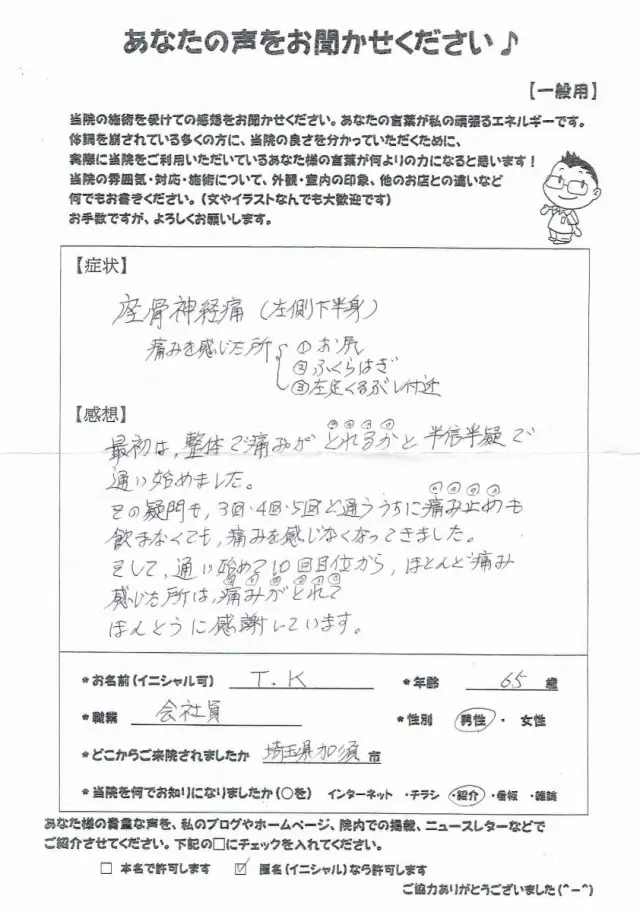 あなたの声をお聞かせください♪
【一般用】
当院の施術を受けての感想をお聞かせください。あなたの言葉が私の頑張るエネルギーです。
体調を崩されている多くの方に、当院の良さを分かっていただくために、
実際に当院をご利用いただいているあなた様の言葉が何よりの力になると思います！
当院の雰囲気・対応・施術について、外観・室内の印象、他のお店との違いなど
何でもお書きください。(文やイラストなんでも大歓迎です)
お手数ですが、よろしくお願いします。
【症状】
座骨神経痛(左側下半身)
痛みを感じた所 ①お尻
②ふくらはぎ
③左足くるぶし付近
【感想】
最初は、整体で痛みがとれるかと半信半疑で
通い始めました。
その疑問も、3回・4回・5回と通ううちに痛み止めも
飲まなくても、痛みを感じなくなってきました。
そして、通い始めて10回目位から、ほとんど痛み
感じた所は、痛みがとれて
ほんとうに感謝しています。
*お名前(イニシャル可) T.K *年齢 65 歳
*職業 会社員 *性別 男性・女性
*どこからご来院されましたか 埼玉県加須市
*当院を何でお知りになりましたか(○を) インターネット ・チラシ ・紹介 ・看板 ・雑誌
あなた様の貴重な声を、私のブログやホームページ、院内での掲載、ニュースレターなどで
ご紹介させてください。下記の□にチェックを入れてください。
□ 本名で許可します ☑ 匿名(イニシャル)なら許可します
ご協力ありがとうございました(^-^)